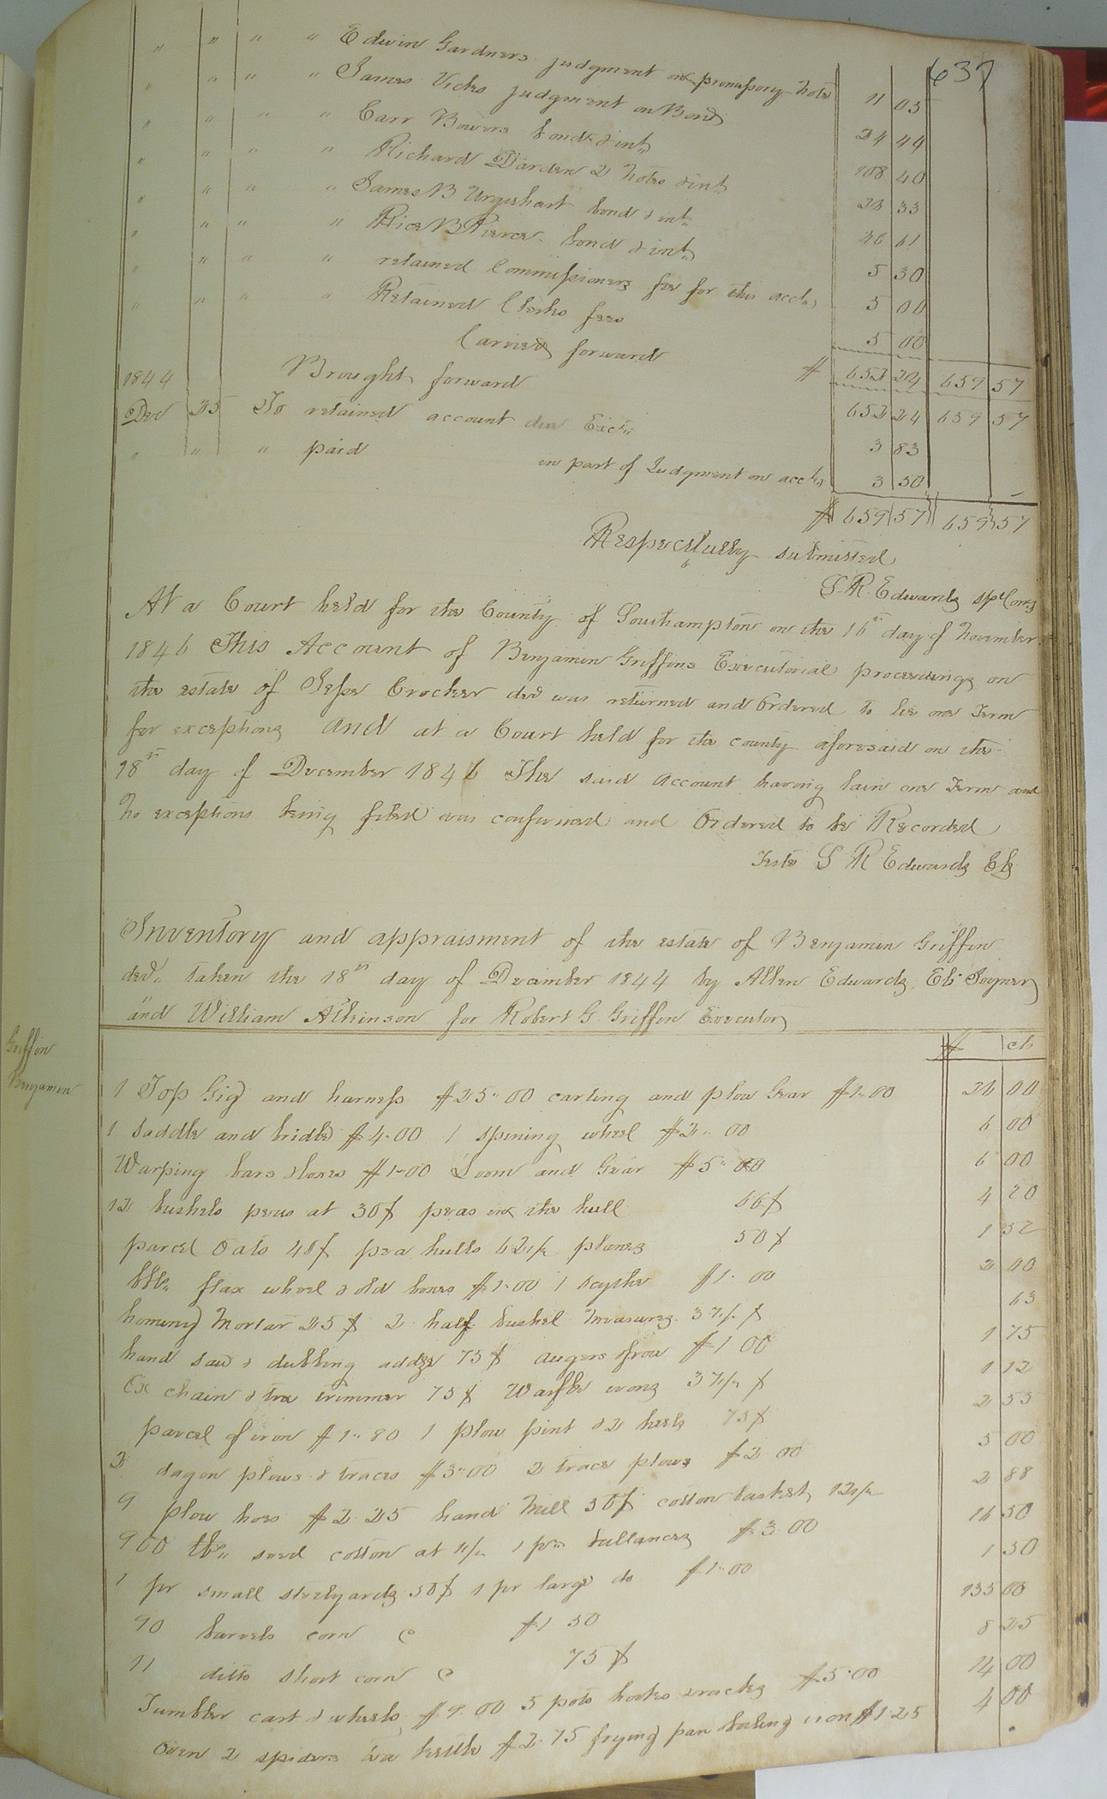 637
" " " " Edwin Gardners judgment on promissory Note 11 03
" " " " James Vicks judgment on Bond 24 44
" " " " Carr Bowers bond & intt 108 40
" " " " Richard Darden 2 Notes & intt 28 33
" " " " James B Urquhart bond & intt 46 61
" " " " Rice B Pierce bond & intt 5 30
" " " " retained Commissioners fee for this acct 5 00
" " " " Retained Clerks fees 5 00
Carried forward $ 652 24 659 57
1844 Brought forward 652 24 659 57
Dec 25 To retained account due Exctr 3 83
" " " paid in part of Judgment on acct 3 50
$ 659 57 659 57
Respectfully submitted
S R Edwards spl Comr
At a Court held for the County of Southampton on the 16th day of November
1846 This Account of Benjamin Griffins Executorial proceedings on
the estate of Jesse Crocker decd was returned and Ordered to lie one Term
for exceptions and at a Court held for the county aforesaid on the
18th day of December 1846 The said account having lain one Term and
No exceptions being filed was confirmed and Ordered to be Recorded
Teste S R Edwards Clk
Inventory and appraisment of the estate of Benjamin Griffin
decd. taken the 18th day of December 1844 by Allen Edwards, Eli Joyner
and William Atkinson for Robert G. Griffin Executor
Griffin
Benjamin
$ cts
1 Top Gig and harness $25.00 carting and plow Gear $1.00 26 00
1 saddle and bridle $4.00 1 spining wheel $2.00 6 00
Warping bars & boxes $1.00 Loom and Gear $5.00 6 00
12 bushels peas at 35¢ peas in the hull 4 20
parcel Oats 48¢ pea hulls 62½ planes 50¢ 1 32
flax wheel & old boxes $1.00 1 scythe $1.00 2 00
hominy Mortar 25¢ 2 half bushel measures 37½¢ 63
hand saw & dubbing addze 75¢ augers frow $1 00 1 75
Ox chain & tree trimmer 75¢ Waffle irons 37½¢ 1 12
parcel of iron $1.80 1 plow pint & 2 heels 75¢ 2 55
2 dagon plows & traces $3.00 2 trace plows $2 00 5 00
9 plow hoes $2.25 hand Mill 50¢ cotton basket 12½ 2 88
900 lbs seed cotton at 1½ 1 pr ballances $3.00 16 50
1 pr small steelyards 50¢ 1 pr large do $1.00 1 50
90 barrels corn @ $1 50 135 00
11 ditto short corn @ 75¢ 8 25
Tumbler cart & wheels $9.00 5 pots hooks & racks $5.00 14 00
Oven 2 spiders tea kettle $2.75 frying pan iron $1.25 4 00